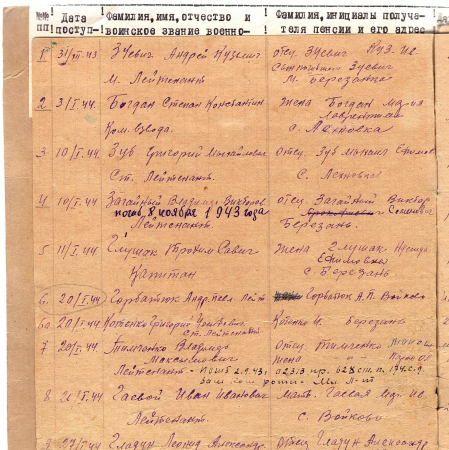 №№ Дата Фамилия, имя, отчество и Фамилия, инициалы получа-
пп поступ- воинское звание военно- теля пенсии и его адрес
1 31/XII.43 Зуевич Андрей Кузьмич отец Зуевич
М. Лейтенант. М. Березанка
2 3/I.44. Богдан Степан Константин жена Богдан Мария
Ком. взвода. Лаврентьев
с. Анновка
3 10/I.44 Зуб Григорий Михайлович Отец Зуб Михаил Ефимов
Ст. Лейтенант. с.
4 10/I.44 Загайный Владимир Викторов отец Загайный Виктор
погиб 8 ноября 1943 года Семенович
Лейтенант. Березань.
5 11/I.44 Глушак Трофим Савич жена Глушак
Капитан Ефимовна
с Березань
6. 20/I.44 Горбатюк Андр. Лейт Горбатюк А.П. Войково
6а 20/I.44 Котенко Григорий Котенко И. Березань
Ст. Лейтенант
7 20/I.44. Тимченко Владимир Отец Тимченко
Максимович жена
Лейтенант - погиб 2.9.43г. 02313 пр. 628 ст. п. 174 с.д.
8 21/I.44 Гаевой Иван Иванович мать Гаевая
Лейтенант. с. Войково
9 27/I.44 Гладун Леонид Александр. Отец Гладун Александр